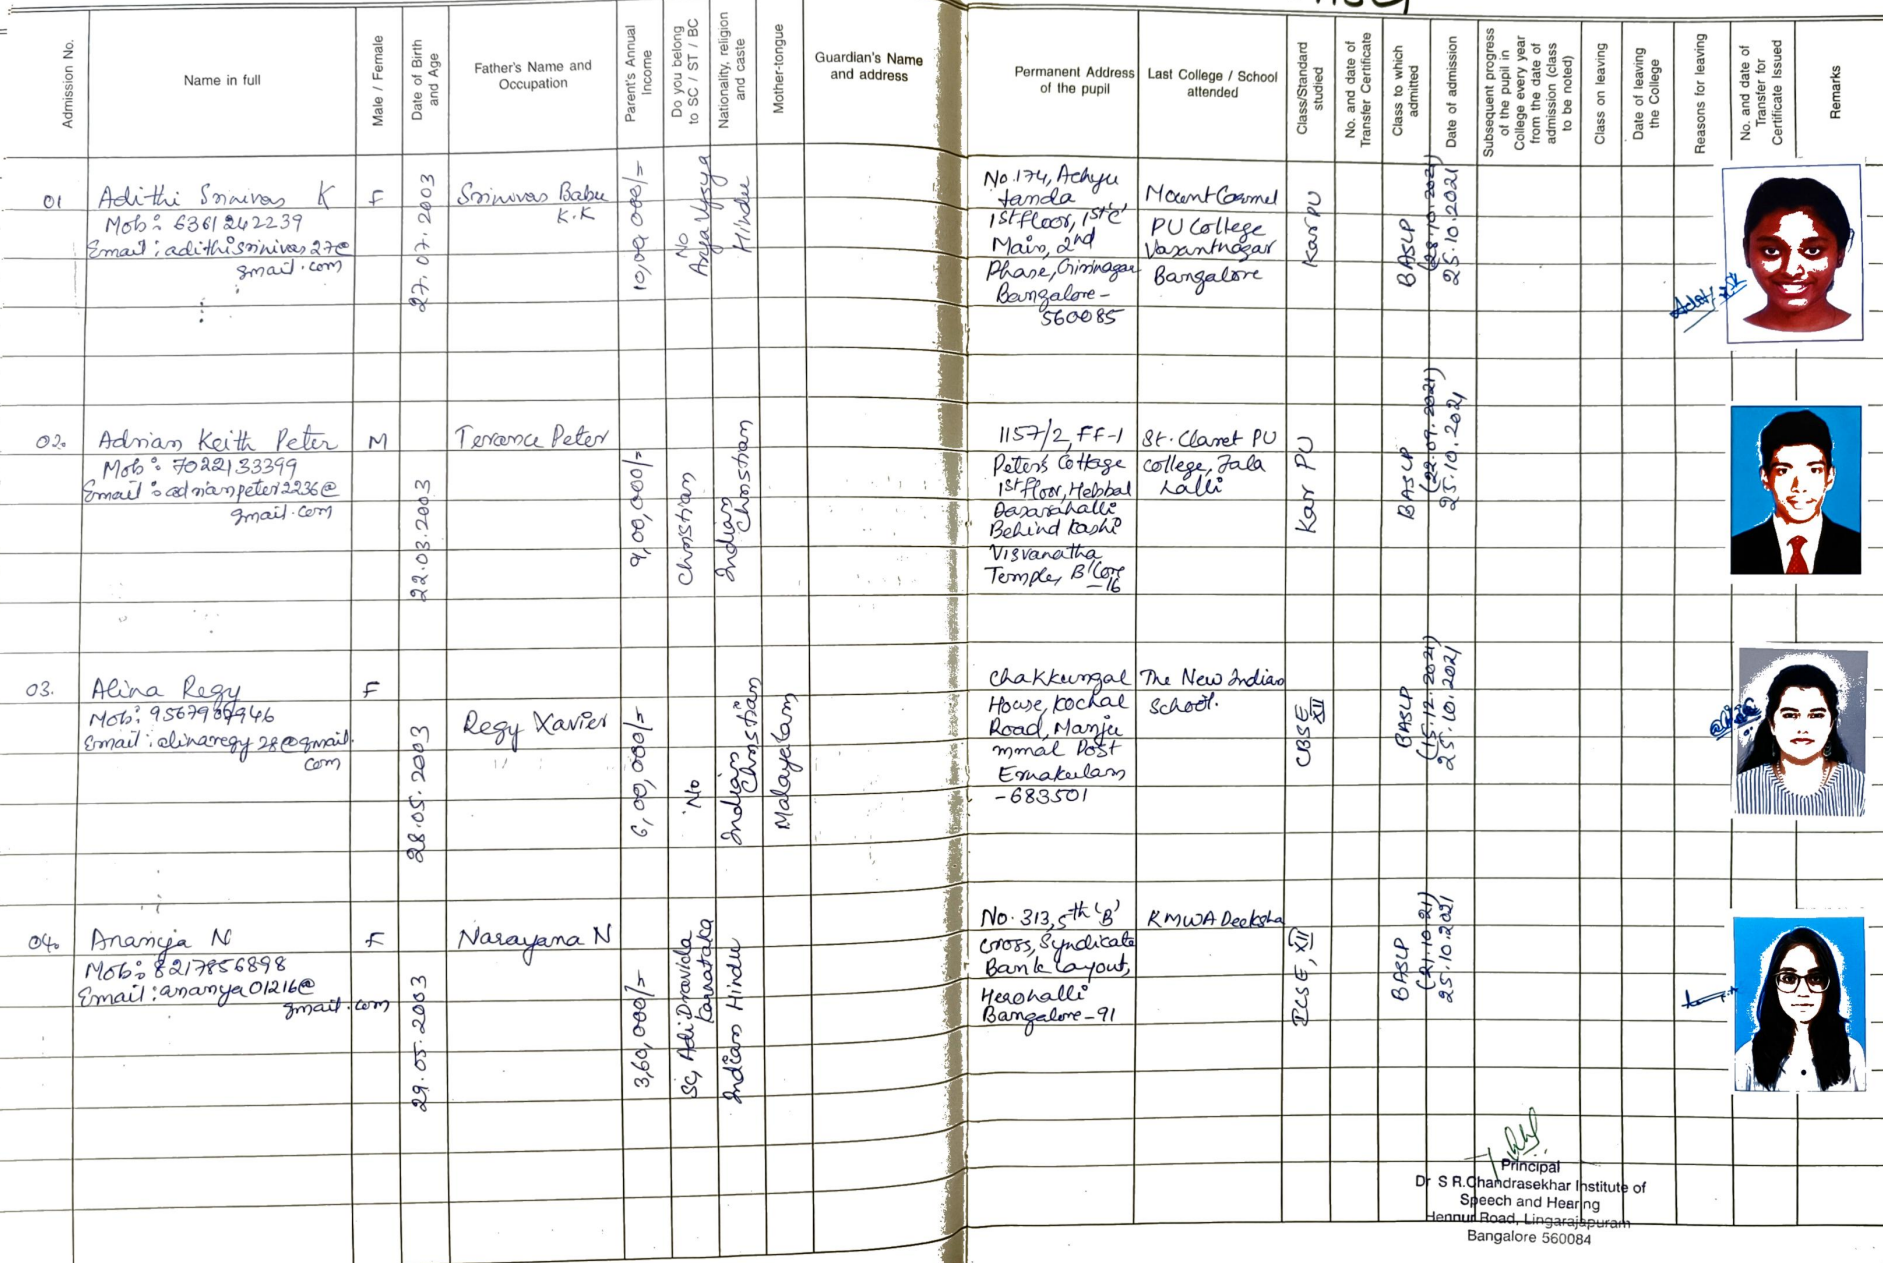 Admission No.
Name in full
Male / Female
Date of Birth
and Age
Father's Name and
Occupation
Parent's Annual
Income
Do you belong
to SC / ST / BC
Nationality, religion
and caste
Mother-tongue
Guardian's Name
and address
Permanent Address
of the pupil
Last College / School
attended
Class/Standard
studied
No. and date of
Transfer Certificate
Class to which
admitted
Date of admission
Subsequent progress
of the pupil in
College every year
from the date of
admission (class
to be noted)
Class on leaving
Date of leaving
the College
Reasons for leaving
No. and date of
Transfer for
Certificate Issued
Remarks
01
Adithi Srinivas K
Mob: 6361242239
Email: adithisrinivas27@
gmail.com
F
27.07.2003
Srinivas Babu
K.K
10,00,000/=
No
Arya Vysya
Hindu
No.174, Achyu
tanda
1st floor, 1st 'C'
Main, 2nd
Phase, Girinagar
Bangalore-
560085
Mount Carmel
PU College
Vasantnagar
Bangalore
Kar PU
BASLP
(28.10.2021)
25.10.2021
02.
Adrian Keith Peter
Mob: 7022133399
Email: adrianpeter2236@
gmail.com
M
22.03.2003
Terance Peter
9,00,000/=
Christian
Indian
Christian
1157/2, FF-1
Peter's Cottage
1st floor, Hebbal
Dasarahalli
Behind Kashi
Visvanatha
Temple, B'lore
-16
St. Claret PU
College, Jala
halli
Kar PU
BASLP
(22.09.2021)
25.10.2021
03.
Alina Regy
Mob: 9567909946
Email: alinaregy28@gmail.
com
F
28.05.2003
Regy Xavier
6,00,000/=
No
Indian
Christian
Malayalam
Chakkungal
House, Kochal
Road, Manju
mmal Post
Ernakulam
-683501
The New Indian
School.
CBSE
XII
BASLP
(15.12.2021)
25.10.2021
04.
Ananya N
Mob: 8217856898
Email: ananya01216@
gmail.com
F
29.05.2003
Narayana N
3,60,000/=
SC, Adi Dravida
Karnataka
Indian Hindu
No. 313, 5th 'B'
cross, Syndicate
Bank Layout,
Herohalli
Bangalore-91
KMWA Deeksha
ICSE, XII
BASLP
(21.10.21)
25.10.2021
Principal
Dr S R.Chandrasekhar Institute of
Speech and Hearing
Hennur Road, Lingarajapuram
Bangalore 560084